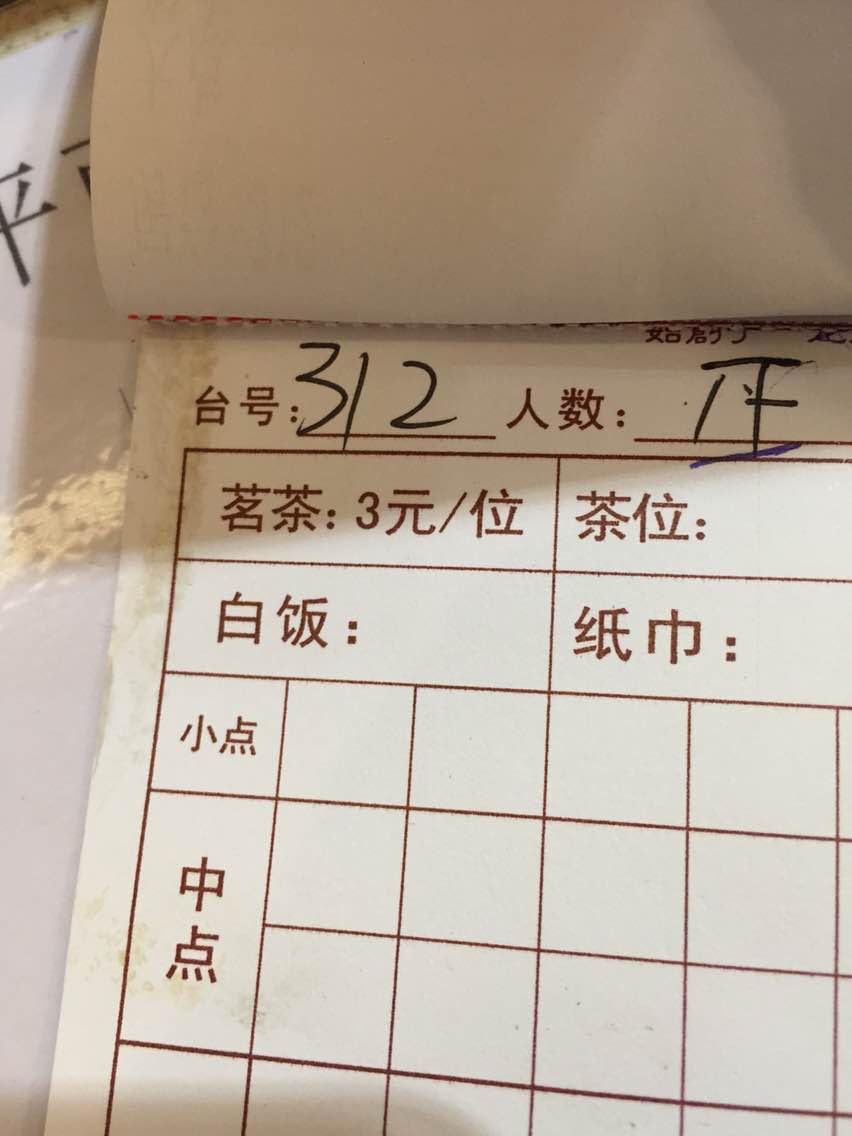 台号:312 人数:
茗茶:3元/位 茶位:
白饭:
纸巾:
小点
中点